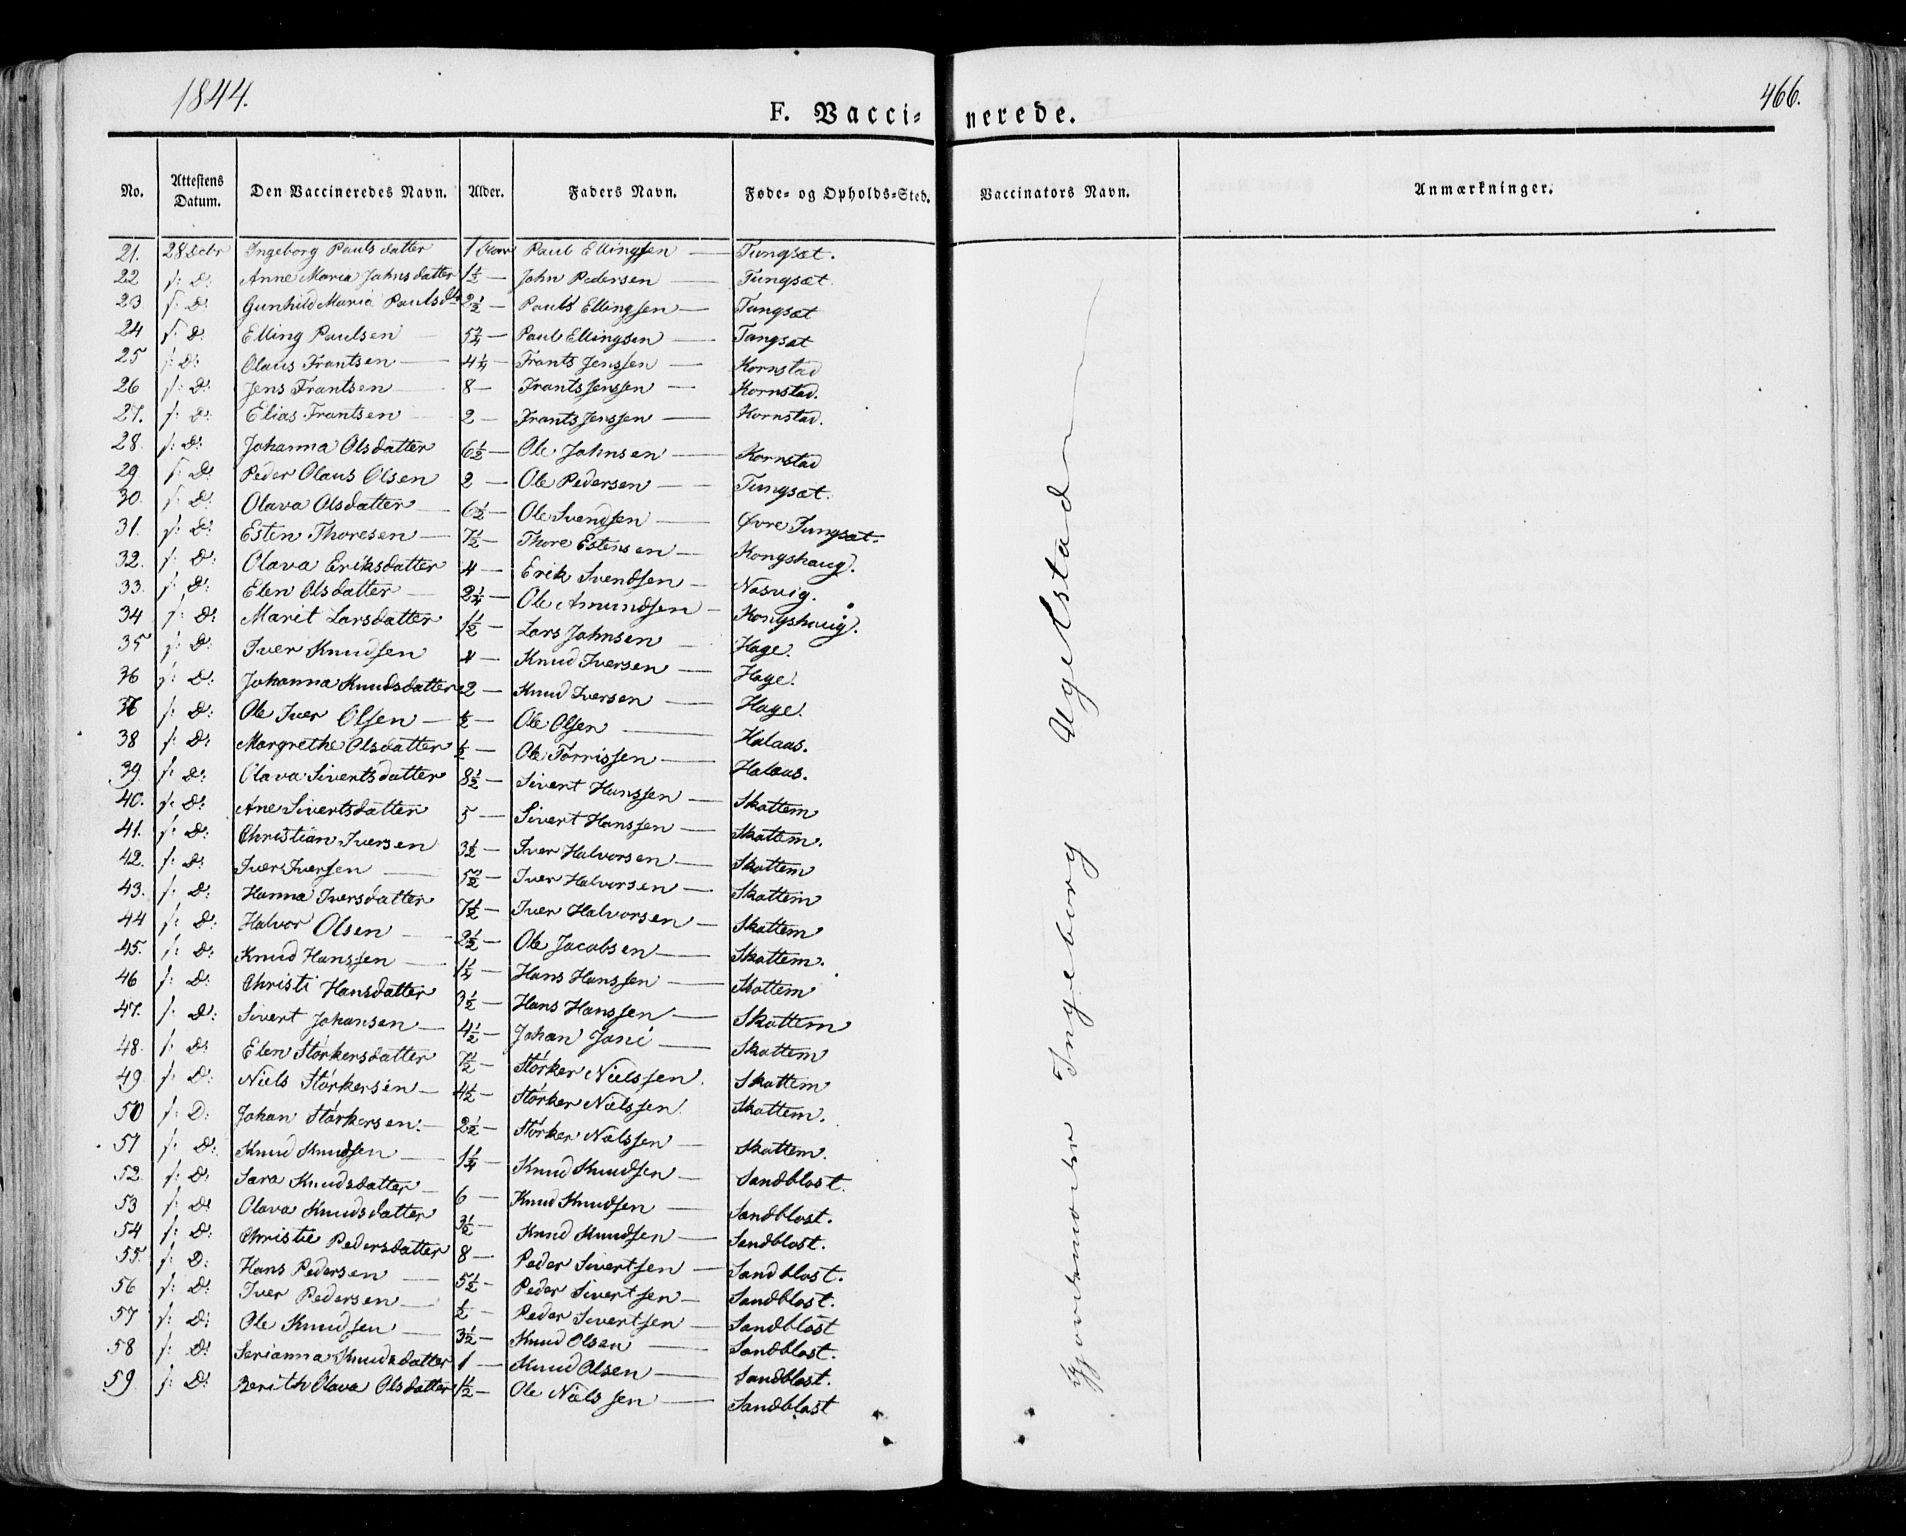 1844.
466.
F. Vacci- nerede.
No. Attestens Datum. Den Vaccineredes Navn. Alder. Faders Navn. Føde- og Opholds-Sted. Vaccinators Navn. Anmærkninger.
21. 28 Ingeborg Paulsdatter 1 Paul Ellingsen — Tungsæt.
22 s: D: Anne Maria Johnsdatter 1½ — John Pedersen — Tungsæt.
23 s: D: Gunhild Maria Paulsd 2½ — Pauls Ellingsen — Tungsæt
24 s: D: Elling Paulsen 5¾ — Paul Ellingsen — Tungsæt
25 s: D: Olaus Frantsen — 4¼ — Frants Jenssen — Kornstad
26 s: D: Jens Frantsen — 8 — Frants Jenssen — Kornstad.
27. s: D: Elias Frantsen 2 — Frants Jenssen — Kornstad.
28. s: D: Johanna Olsdatter 6½ — Ole Johnsen — Kornstad
29 s: D: Peder Olaus Olsen 2 — Ole Pedersen — Tungsæt.
30. s: D: Olava Olsdatter — 6½ — Ole Svendsen — Øvre Tungsæt.
31. s: D: Esten Thoresen — 7½ — Thore Estensen — Kongshaug.
32. s: D: Olava Eriksdatter 4 — Erik Svendsen — Nasvig.
33. s: D: Elen Olsdatter — 2¼ — Ole Amundsen — Kongshaug.
34 s: D: Marit Larsdatter 1½ — Lars Johnsen — Hage.
35 s: D: Iver Knudsen 4 — Knud Iversen — Hage.
36 s: D: Johanna Knudsdatter 2 — Knud Iversen — Hage.
37 s: D: Ole Iver Olsen — ½ — Ole Olsen — Halaas.
38 s: D: Margrethe Olsdatter ½ — Ole Torrissen — Halaas.
39. s: D: Olava Sivertsdatter 8½ — Sivert Hanssen — Skottem
40. s: D: Ane Sivertsdatter 5 — Sivert Hanssen — Skottem.
41. s: D: Christian Iversen 3½ — Iver Halvorsen — Skottem
42. s: D: Iver Iversen — 5½ — Iver Halvorsen — Skottem
43. s: D: Hanna Iversdatter 7½ — Iver Halvorsen — Skottem
44 s: D: Halvor Olsen — 2½ — Ole Jacobsen — Skottem.
45. s: D: Knud Hanssen — 1¼ — Hans Hanssen — Skottem
46 s: D: Christi Hansdatter 3½ — Hans Hanssen — Skottem
47. s: D: Sivert Johansen — 4½ — Johan Joni — Skottem
48. s: D: Elen Störkersdatter 7½ — Störker Nielssen. Skottem
49 s: D: Niels Störkersen — 4½ — Störker Nielssen. Skottem.
50 s: D: Johan Störkersen. — 2½ — Störker Nielssen — Skottem.
51 s: D: Knud Knudsen — 1¼ — Knud Knudsen — Sandblost.
52. s: D: Sara Knudsdatter — 6 — Knud Knudsen — Sandblost.
53 s: D: Olava Knudsdatter 3½ — Knud Knudsen — Sandblost.
54 s: D: Christie Pedersdatter 8 — Peder Sivertsen — Sandblost.
55. s: D: Hans Pedersen — 5½ — Peder Sivertsen — Sandblost.
56 s: D: Iver Pedersen — ½ — Peder Sivertsen — Sandblost
57 s: D: Ole Knudsen — 3½ — Knud Olsen — Sandblost.
58 s: D: Serianna Knudsdatter 1 — Knud Olsen — Sandblost.
59 s: D: Berith Olava Olsdatter 1½ — Ole Nielssen — Sandblost
Gjordemoder Ingeborg Ugelstad